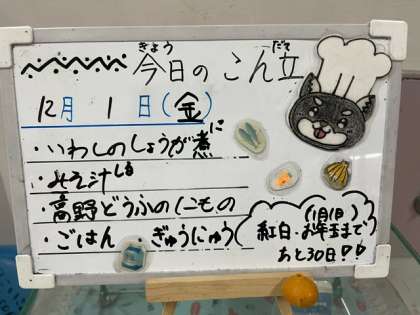 今日のこん立
きょう だて
12月 1日(金)
・いわしのしょうが煮
に
・みそ汁
しる
・高野どうふのにもの
・ごはん ・ぎゅうにゅう
(1月1日)
紅白・お年玉まで
あと30日!!